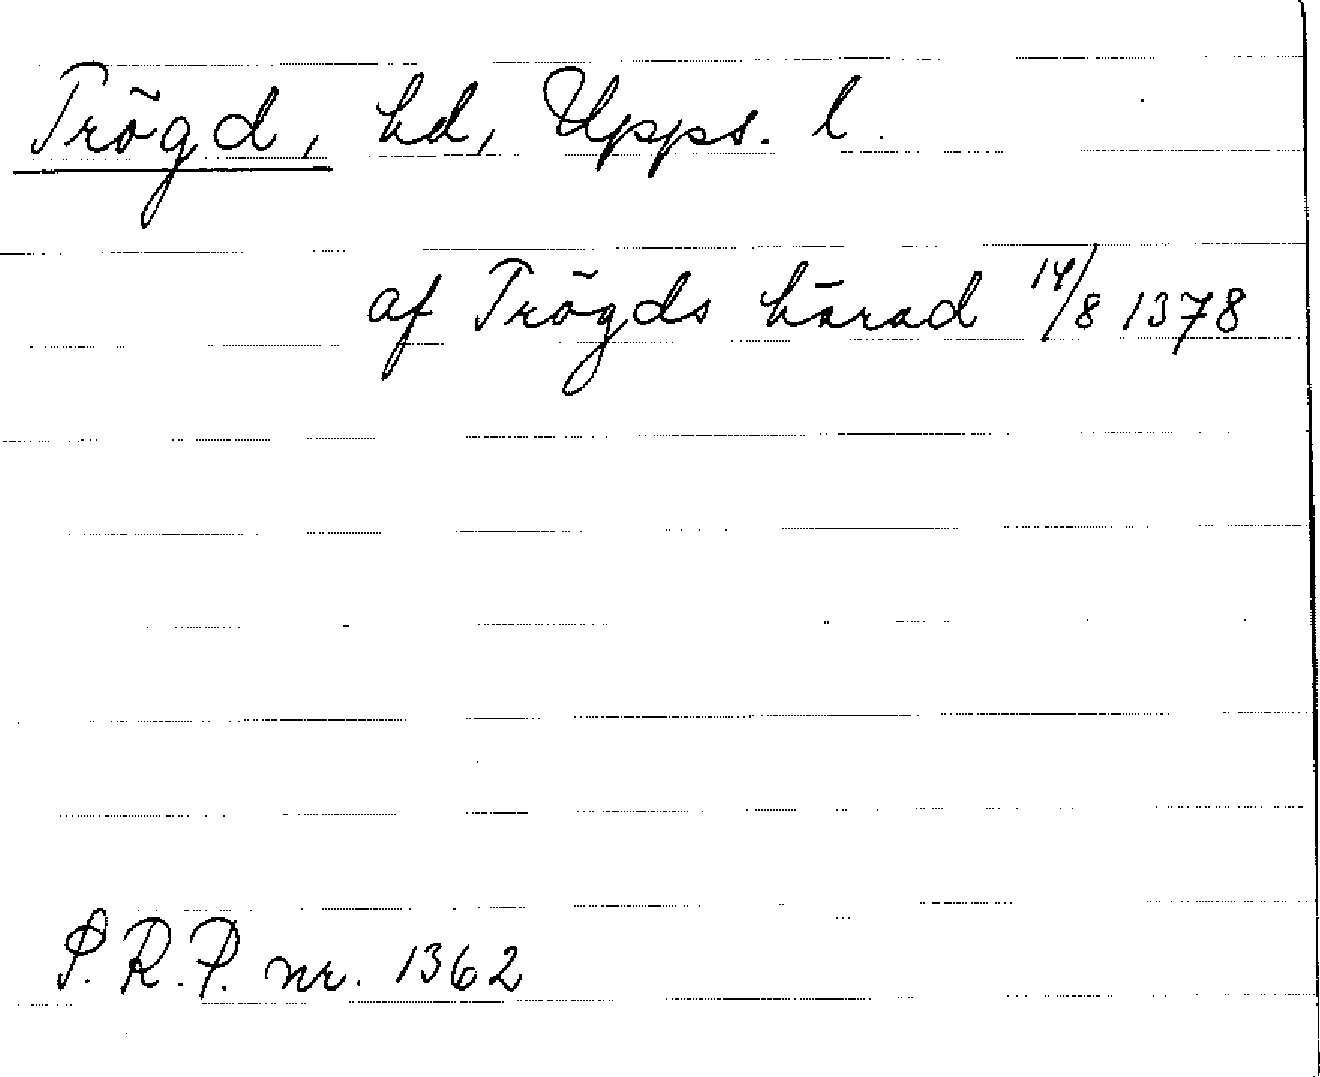 Trögd, hd, Upps. l.
af Trögds härad 14/8 1378
S.R.P. nr. 1362